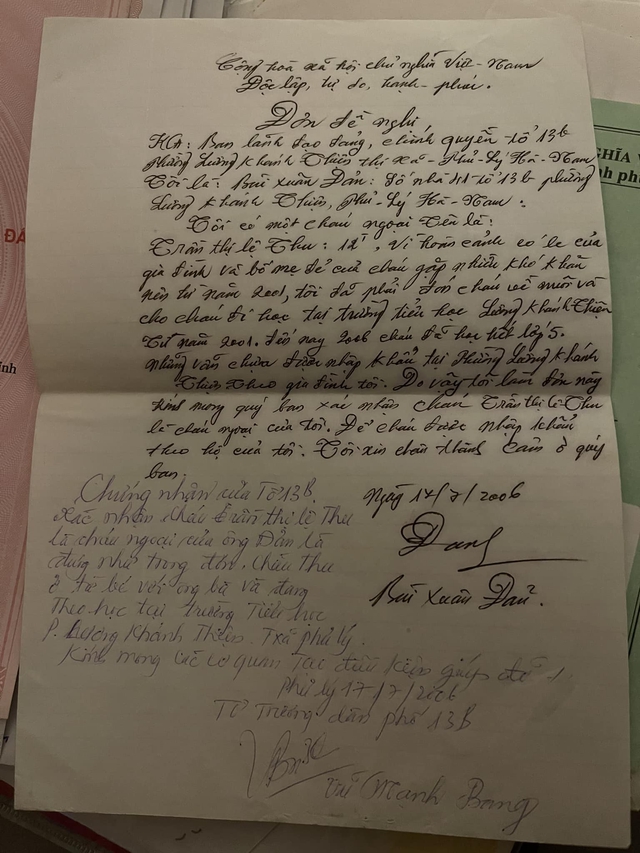 Cộng hoà xã hội chủ nghĩa Việt-Nam
Độc lập, tự do, hạnh-phúc.
Đơn đề nghị
KG: Ban lãnh đạo đảng, chính quyền tổ 13b
phường Lương Khánh Thiện thị xã-Phủ-Lý Hà-Nam
Tôi là: Bùi Xuân Đản: Số nhà tổ 13b phường
Lương Khánh Thiện, Phủ-Lý Hà-Nam.
Tôi có một cháu ngoại tên là:
Trần thị lệ Thu: vì hoàn cảnh éo le của
gia đình và bố mẹ đẻ của cháu gặp nhiều khó khăn
nên từ năm 2001, tôi đã phải đón cháu về nuôi và
cho cháu đi học tại trường tiểu học Lương Khánh Thiện
Từ năm 2001. đến nay 2006 cháu đã học hết lớp 5.
nhưng vẫn chưa được nhập khẩu tại Phường Lương Khánh
Thiện theo gia đình tôi. Do vậy tôi làm đơn này
kính mong quý ban xác nhận cháu Trần thị lệ Thu
là cháu ngoại của tôi. Để cháu được nhập khẩu
theo hộ của tôi. Tôi xin chân thành cảm ơ quý
ban.
Ngày 14/7/2006
Bùi Xuân Đản.
Chứng nhận của Tổ 13B.
Xác nhận cháu Trần thị lệ Thu
là cháu ngoại của ông Đản là
đúng như trong đơn. Cháu Thu
ở từ bé với ông bà và đang
Theo học tại trường Tiểu học
P. Lương Khánh Thiện. T.xã phủ lý.
Kính mong các cơ quan Tạo điều kiện giúp đỡ
Phủ lý 17/7/2006
Tổ Trưởng dân phố 13B
Mạnh Bang
NGHĨA V
nh phú
ĐẢ
ính